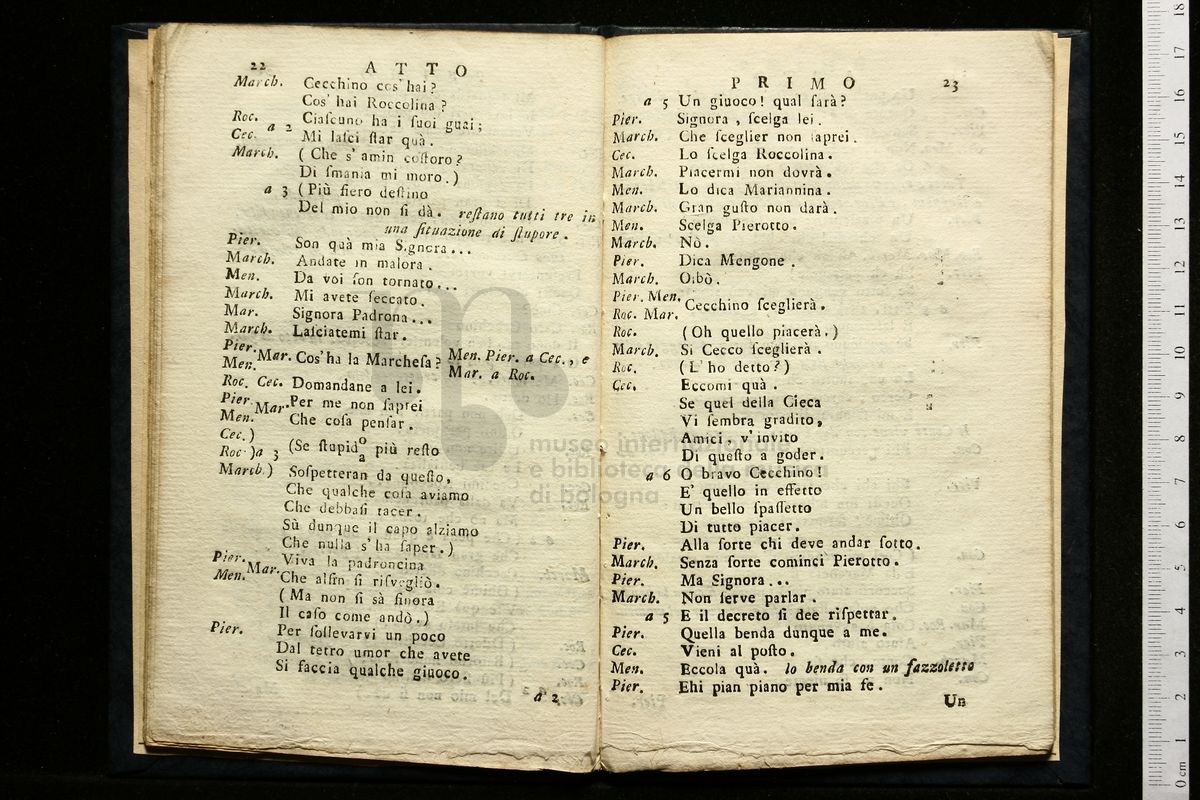 22 ATTO
March. Cecchino cos' hai?
Cos' hai Roccolina?
Roc. Ciaſcuno ha i ſuoi guai;
Cec. a 2 Mi laſci ſtar quà.
March. ( Che s' amin coſtoro?
Di ſmania mi moro.)
a 3 (Più fiero deſtino
Del mio non ſi dà. reſtano tutti tre in
una ſituazione di ſtupore.
Pier. Son quà mia Signora...
March. Andate in malora.
Men. Da voi ſon tornato...
March. Mi avete ſeccato.
Mar. Signora Padrona...
March. Laſciatemi ſtar.
Pier. Mar. Men. Cos' ha la Marcheſa? Men. Pier. a Cec., e
Mar. a Roc.
Roc. Cec. Domandane a lei.
Pier. Mar. Per me non ſaprei
Men. Che coſa penſar.
Cec. )
Roc. )a 3 (Se ſtupid o a più reſto
March.) Soſpetteran da queſto,
Che qualche coſa aviamo
Che debbaſi tacer.
Sù dunque il capo alziamo
Che nulla s' ha ſaper.)
Pier. Mar. Viva la padroncina
Men. Che alfin ſi riſvegliò.
( Ma non ſi sà finora
Il caſo come andò.)
Pier. Per ſollevarvi un poco
Dal tetro umor che avete
Si faccia qualche giuoco.
a 2
PRIMO 23
a 5 Un giuoco! qual ſarà?
Pier. Signora, ſcelga lei.
March. Che ſceglier non ſaprei.
Cec. Lo ſcelga Roccolina.
March. Piacermi non dovrà.
Men. Lo dica Mariannina.
March. Gran guſto non darà.
Men. Scelga Pierotto.
March. Nò.
Pier. Dica Mengone.
March. Oibò.
Pier. Men.
Roc. Mar. Cecchino ſceglierà.
Roc. (Oh quello piacerà.)
March. Si Cecco ſceglierà.
Roc. (L' ho detto?)
Cec. Eccomi quà.
Se quel della Cieca
Vi ſembra gradito,
Amici, v' invito
Di queſto a goder.
a 6 O bravo Cecchino!
E' quello in effetto
Un bello ſpaſſetto
Di tutto piacer.
Pier. Alla ſorte chi deve andar ſotto.
March. Senza ſorte cominci Pierotto.
Pier. Ma Signora...
March. Non ſerve parlar.
a 5 E il decreto ſi dee riſpettar.
Pier. Quella benda dunque a me.
Cec. Vieni al poſto.
Men. Eccola quà. lo benda con un fazzoletto
Pier. Ehi pian piano per mia fe.
Un
museo internazionale
e biblioteca della musica
di bologna
0 cm 1 2 3 4 5 6 7 8 9 10 11 12 13 14 15 16 17 18